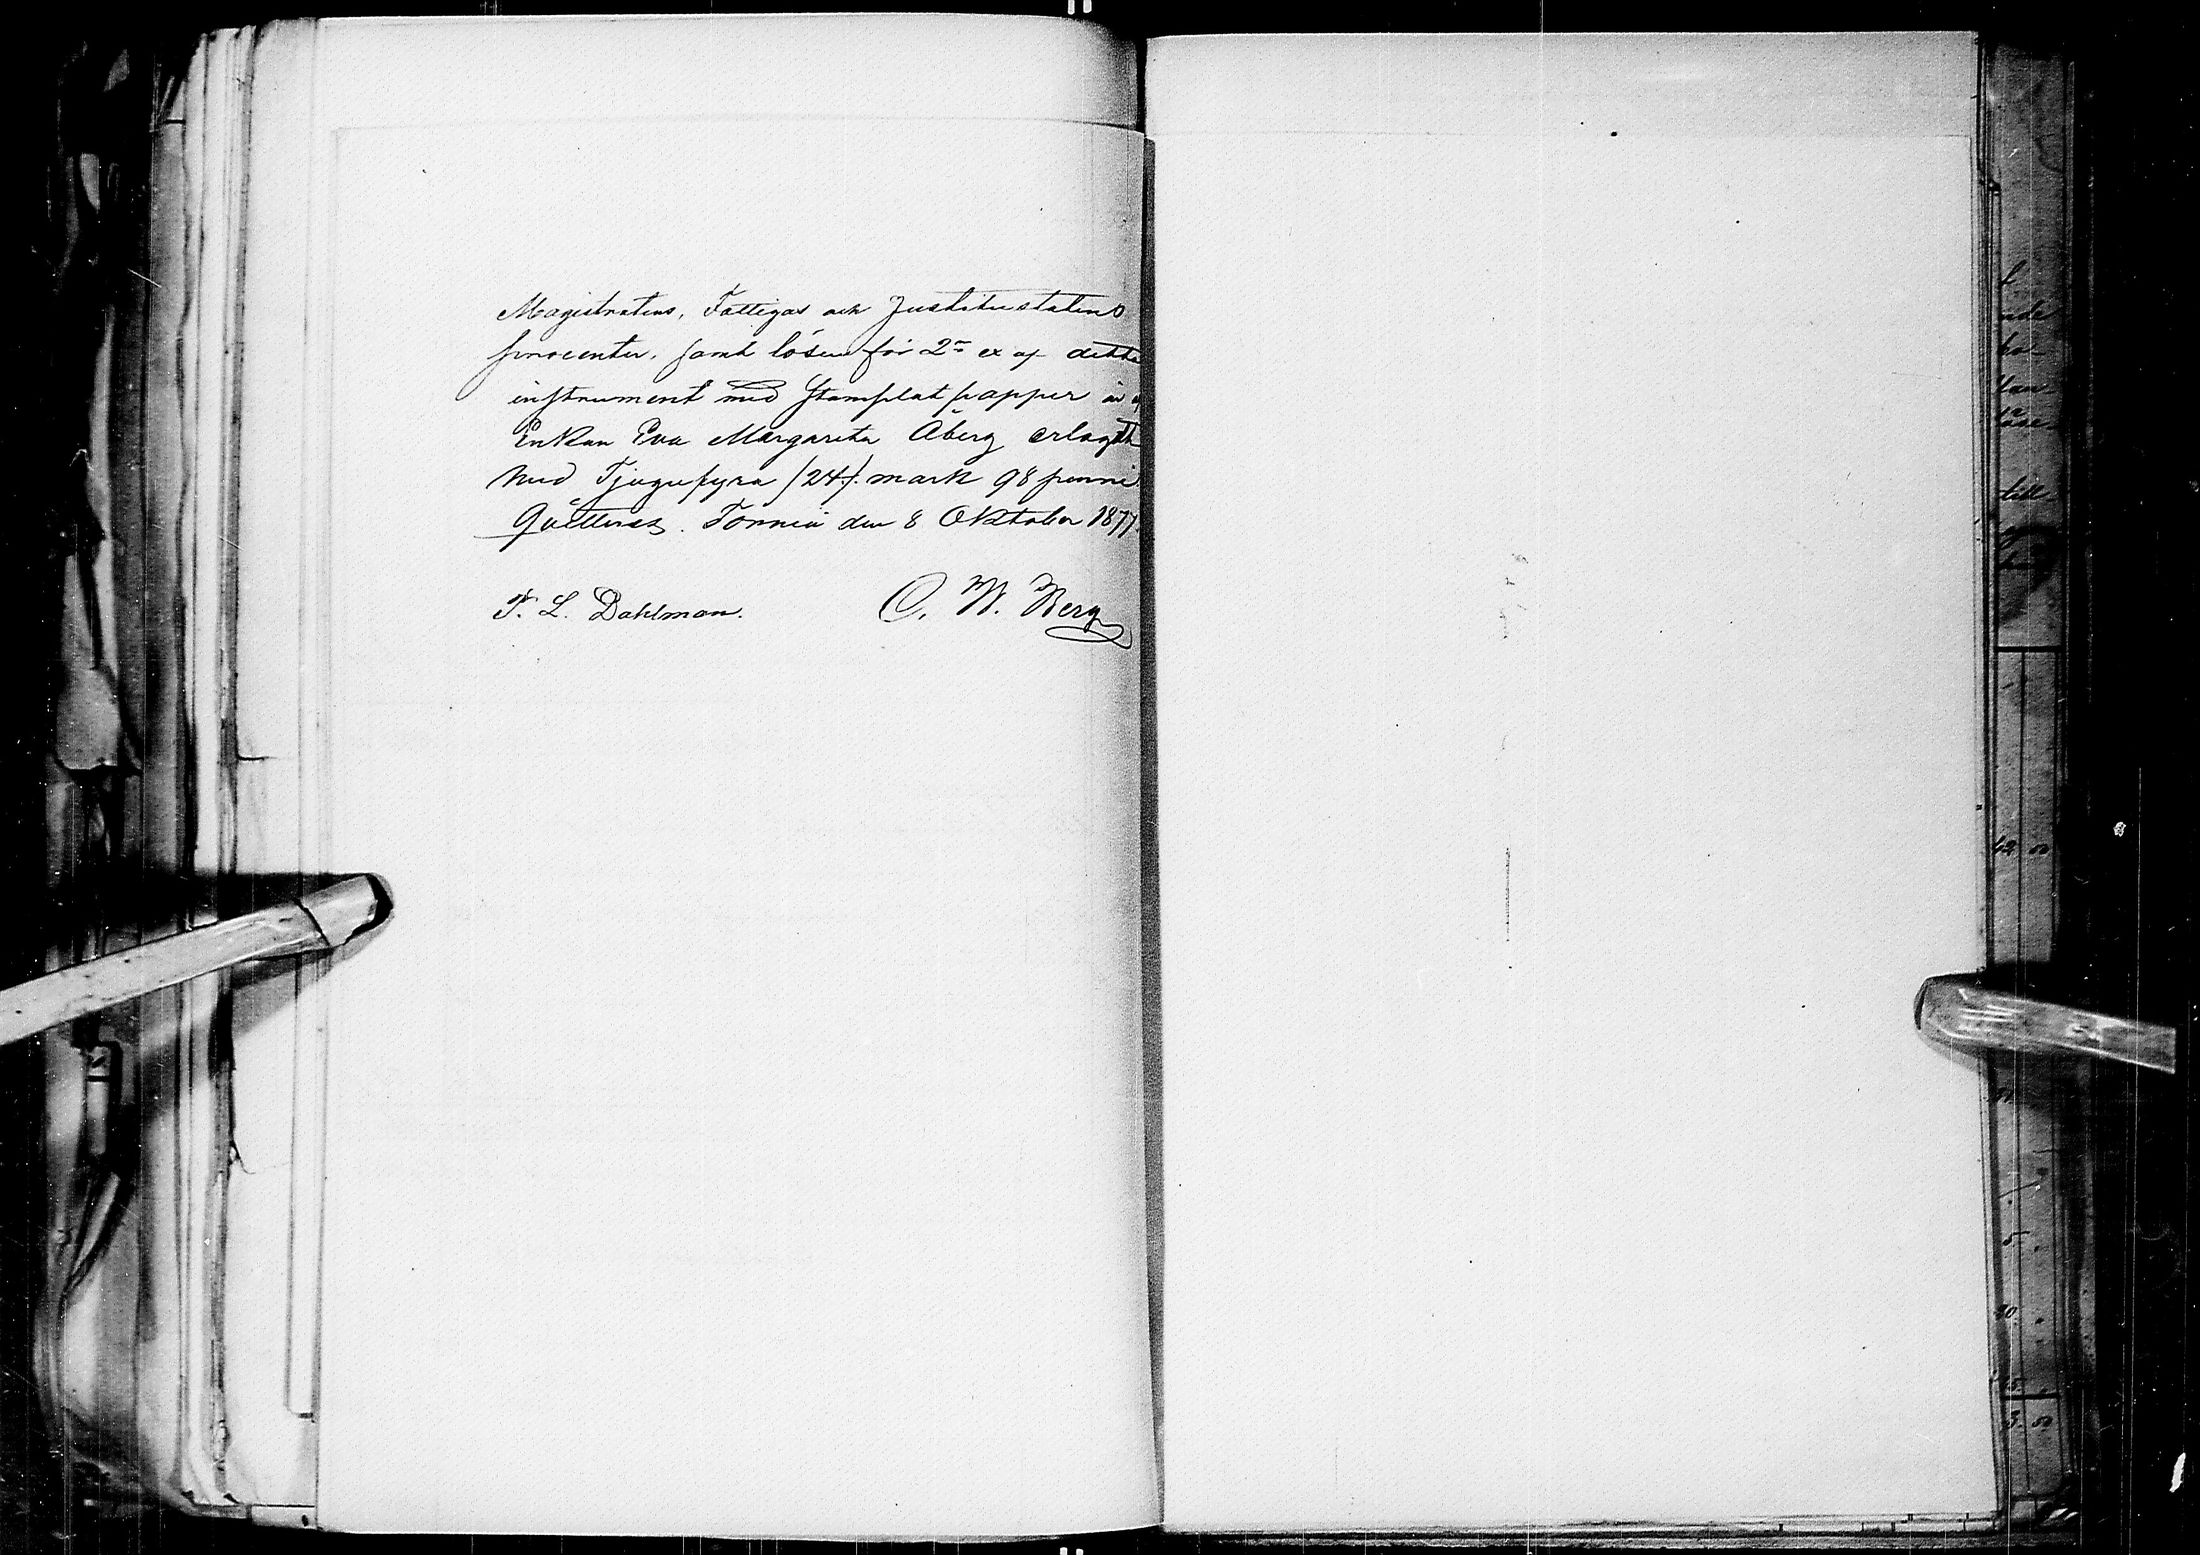 Magistratens, Fattigas och Justitiestatens
procenter, samt lösen för 2ne ex af detta
instrument med Stämplat papper är af
Enkan Eva Margareta Åberg erlagdt
med Tjugufyra /24/. mark 98 penni
Qvitteras. Torneå den 8 Oktober 1877.
T. L. Dahlman. C. W. Berg
till